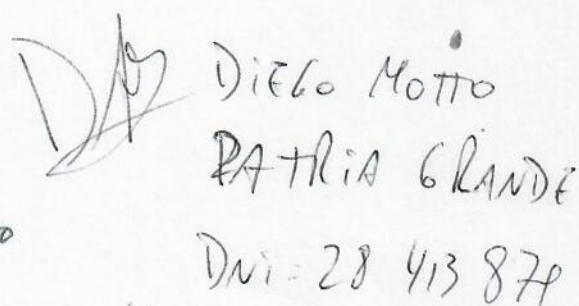 DiEGo MOTTO
PATRiA GRANDE
DNi: 28 413 879